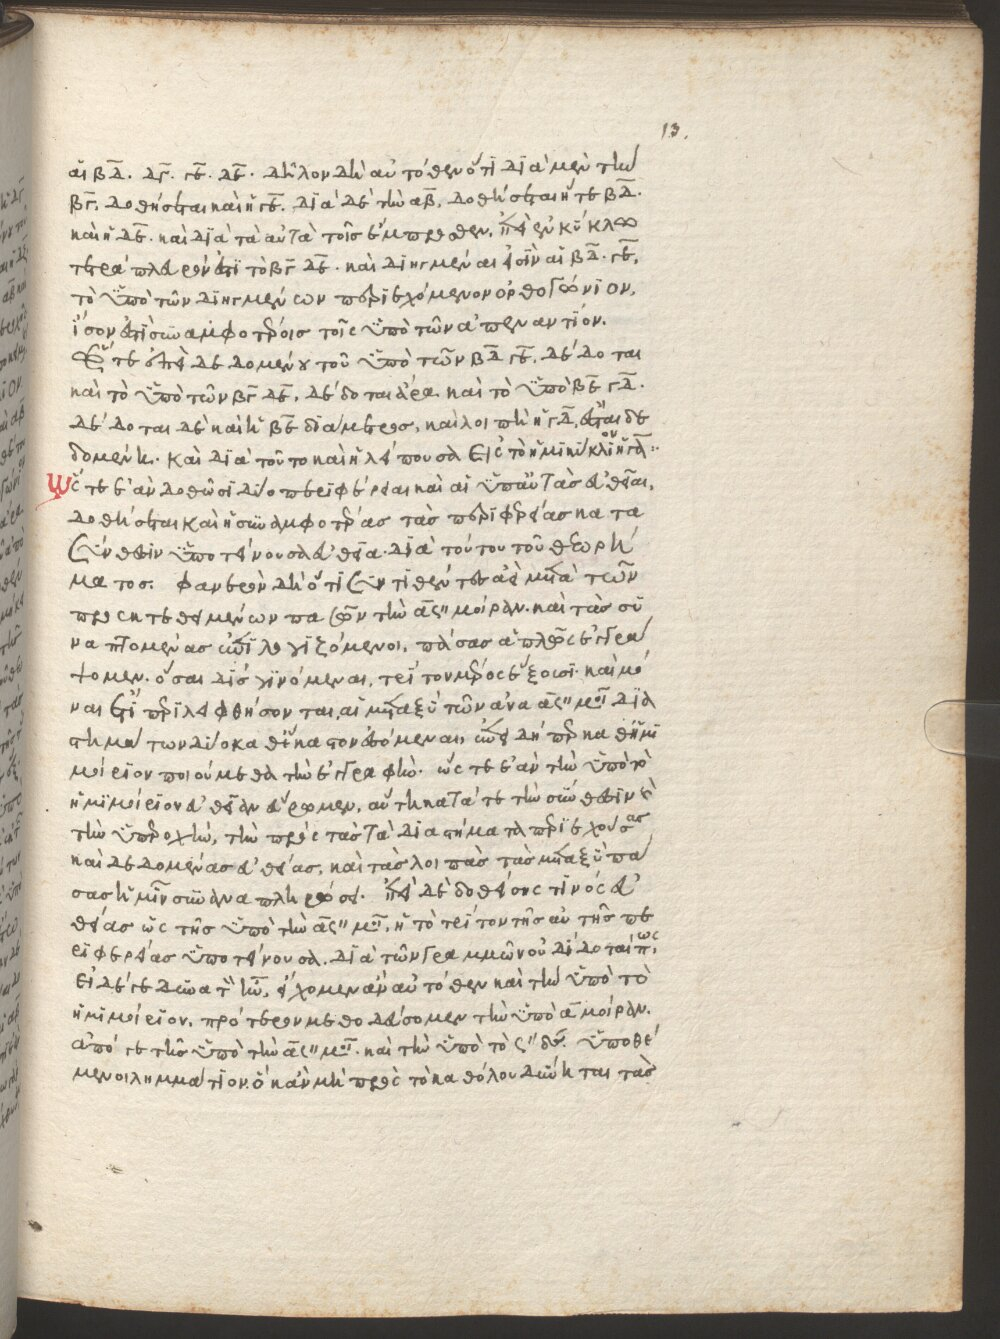 13.
αἱ ΒΔ. ΔΓ. ΓΕ. ΔΕ. δῆλον δὴ αὐτόθεν ὅτι διὰ μὲν τὴν
ΒΓ, δοθήσεται καὶ ἡ ΓΕ. διὰ δὲ τὴν ΑΒ, δοθήσεται ἥ τε ΒΔ.
καὶ ἡ ΔΕ. καὶ διὰ τὰ αὐτὰ τοῖς ἔμπροσθεν, ἐπεὶ ἐν κύκλω
τετράπλευρόν ἐστι τὸ ΒΓ ΔΕ. καὶ διηγμέναι εἰσὶν αἱ ΒΔ. ΓΕ,
τὸ ὑπὸ τῶν διηγμένων περιεχόμενον ὀρθογώνιον,
ἴσον ἐστὶ συναμφοτέροις τοῖς ὑπὸ τῶν ἀπεναντίον.
ὥστε ἐπεὶ δεδομένου τοῦ ὑπὸ τῶν ΒΔ ΓΕ, δέδοται
καὶ τὸ ὑπὸ τῶν ΒΓ ΔΕ, δέδοται ἄρα καὶ τὸ ὑπὸ ΒΕ ΓΔ.
δέδοται δὲ καὶ ἡ ΒΕ διάμετρος, καὶ λοιπὴ ἡ ΓΔ, ἔσται δε
δομένη. καὶ διὰ τοῦτο καὶ ἡ λείπουσα εἰς τὸ ἡμικύκλιον ἡ ΓΑ:
ὥστε ἐὰν δοθῶσι δύο περιφέρειαι καὶ αἱ ὑπ' αὐτὰς εὐθεῖαι,
δοθήσεται καὶ ἡ συναμφοτέρας τὰς περιφερείας κατὰ
σύνθεσιν ὑποτείνουσα εὐθεῖα διὰ τούτου τοῦ θεωρή
ματος. φανερὸν δὴ ὅτι συντιθέντες ἀεὶ μετὰ τῶν
προεκτεθειμένων πασῶν τὴν ᾱ ς″ μοίραν. καὶ τὰς συ
ναπτομένας ἐπιλογιζόμενοι, πάσας ἁπλῶς ἐγγρά
ψομεν. ὅσαι δὶς γινόμεναι, τρίτον μέρος ἕξουσι. καὶ μό
ναι ἔτι περιλειφθήσονται, αἱ μεταξὺ τῶν ἀνὰ ᾱ ς″ μοι δια
στημάτων δύο καθ' ἕκαστον ἐσόμεναι, ἐπειδήπερ καθ' ἡμι
μοίριον ποιούμεθα τὴν ἐγγραφήν. ὥστε ἐὰν τὴν ὑπὸ τὸ
ἡμιμοίριον εὐθεῖαν εὕρωμεν, αὕτη κατά τε τὴν σύνθεσιν καὶ
τὴν ὑπεροχήν, τὴν πρὸς τὰς τὰ διαστήματα περιεχούσας
καὶ δεδομένας εὐθείας, καὶ τὰς λοιπὰς τὰς μεταξὺ πά
σας ἡμῖν συναναπληρώσει. ἐπεὶ δὲ δοθείσης τινὸς εὐ
θείας ὡς τῆς ὑπὸ τὴν ᾱ ς″ μοι, ἡ τὸ τρίτον τῆς αὐτῆς πε
ριφερείας ὑποτείνουσα διὰ τῶν γραμμῶν οὐ δίδοταί πως,
εἰ δέ γε δυνατὸν ἦν, εἴχομεν ἂν αὐτόθεν καὶ τὴν ὑπὸ τὸ
ἡμιμοίριον. πρότερον μεθοδεύσομεν τὴν ὑπὸ ᾱ μοίραν.
ἀπό τε τῆς ὑπὸ τὴν ᾱ ς″ μοι. καὶ τὴν ὑπὸ τὸ ς″ δον. ὑποθέ
μενοι λημμάτιον. ὃ κἂν μὴ πρὸς τὸ καθόλου δύνηται τὰς